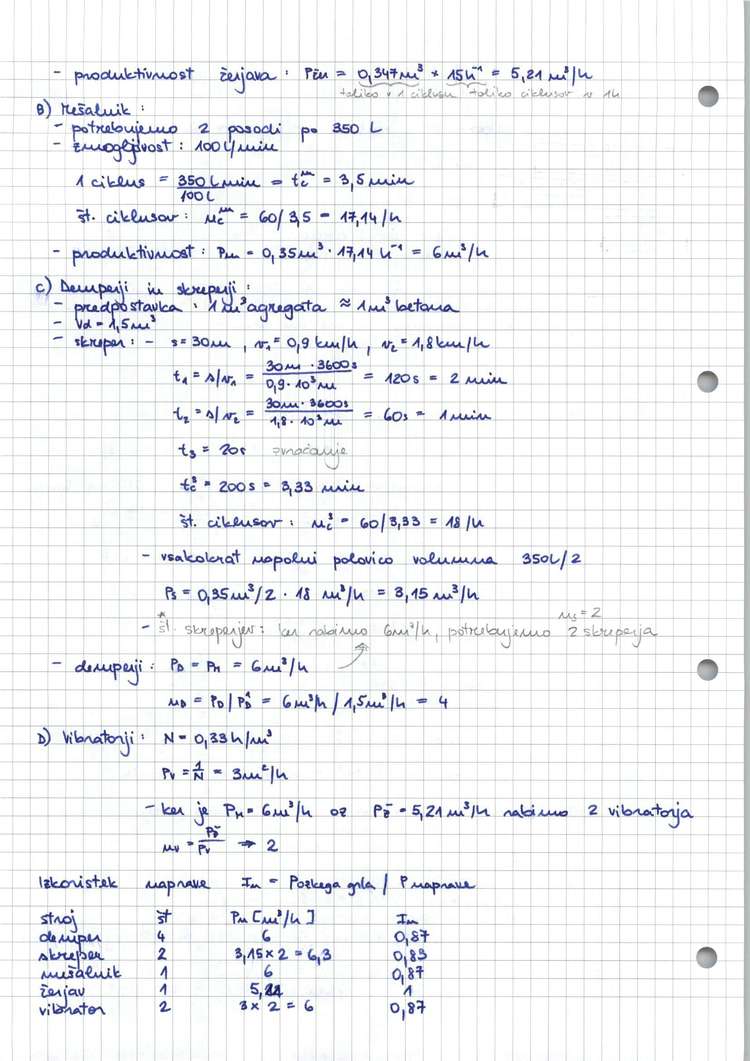 - produktivnost žerjava : Pžer = 0,347 m³ * 15 h⁻¹ = 5,21 m³/h
toliko v 1 ciklusu toliko ciklusov v 1h
B) Mešalnik :
- potrebujemo 2 posodi po 350 L
- zmogljivost : 100 L/min
1 ciklus = 350 L min / 100 L = tcᵐ = 3,5 min
št. ciklusov : ncᵐ = 60/3,5 = 17,14/h
- produktivnost : Pm = 0,35 m³ · 17,14 h⁻¹ = 6 m³/h
C) Demperji in skreperji :
- predpostavka : 1 m³ agregata ≈ 1 m³ betona
- Vd = 1,5 m³
- skreper : - s = 30 m , v₁ = 0,9 km/h , v₂ = 1,8 km/h
t₁ = s/v₁ = 30m · 3600s / 0,9 · 10³ m = 120 s = 2 min
t₂ = s/v₂ = 30m · 3600s / 1,8 · 10³ m = 60s = 1 min
t₃ = 20s
tcˢ = 200 s = 3,33 min
št. ciklusov : ncˢ = 60/3,33 = 18 /h
- vsakokrat napolni polovico volumna 350L/2
Ps = 0,35 m³/2 · 18 m³/h = 3,15 m³/h
ns = 2
- št. skreperjev : ker rabimo 6m³/h, potrebujemo 2 skreperja
- demperji : PD = PM = 6 m³/h
nD = PD / PD¹ = 6 m³/h / 1,5 m³/h = 4
D) Vibratorji : N = 0,33 h/m³
Pv = 1/N = 3 m²/h
- ker je PM = 6 m³/h oz Pž = 5,21 m³/h rabimo 2 vibratorja
nv = Pž/Pv → 2
Izkoristek naprave In = Pozkega grla / P naprave
stroj št Pn [m³/h] In
demper 4 6 0,87
skreper 2 3,15 x 2 = 6,3 0,83
mešalnik 1 6 0,87
žerjav 1 5,21 1
vibrator 2 3 x 2 = 6 0,87